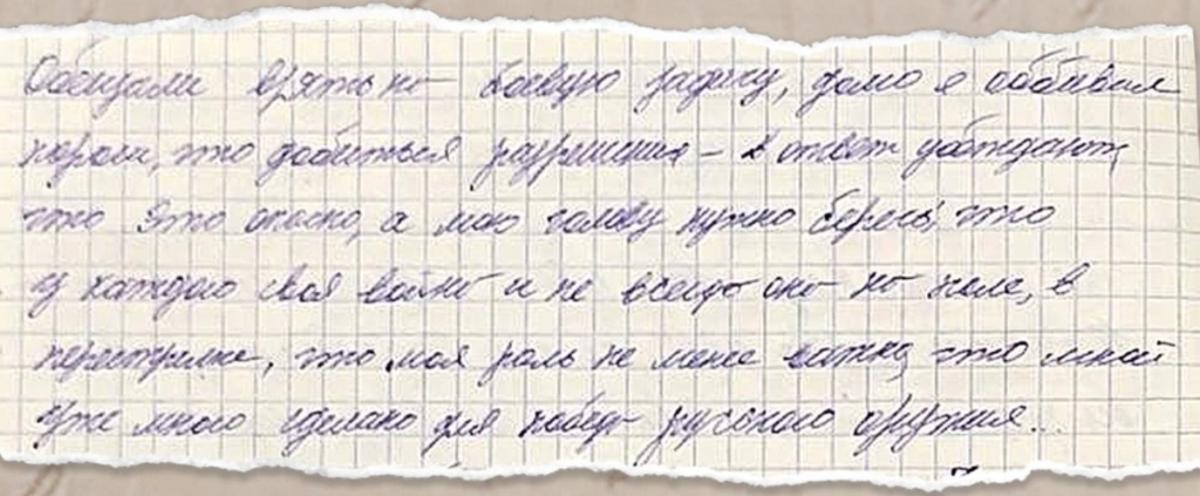 Обещали взять на боевую задачу, долго я оббивал
пороги, что добиться разрешения – в ответ убеждают,
что это опасно, а мою голову нужно беречь, что
у каждого своя война и не всегда она на поле, в
перестрелке, что моя роль не менее важна, что мной
уже много сделано для победы русского оружия...